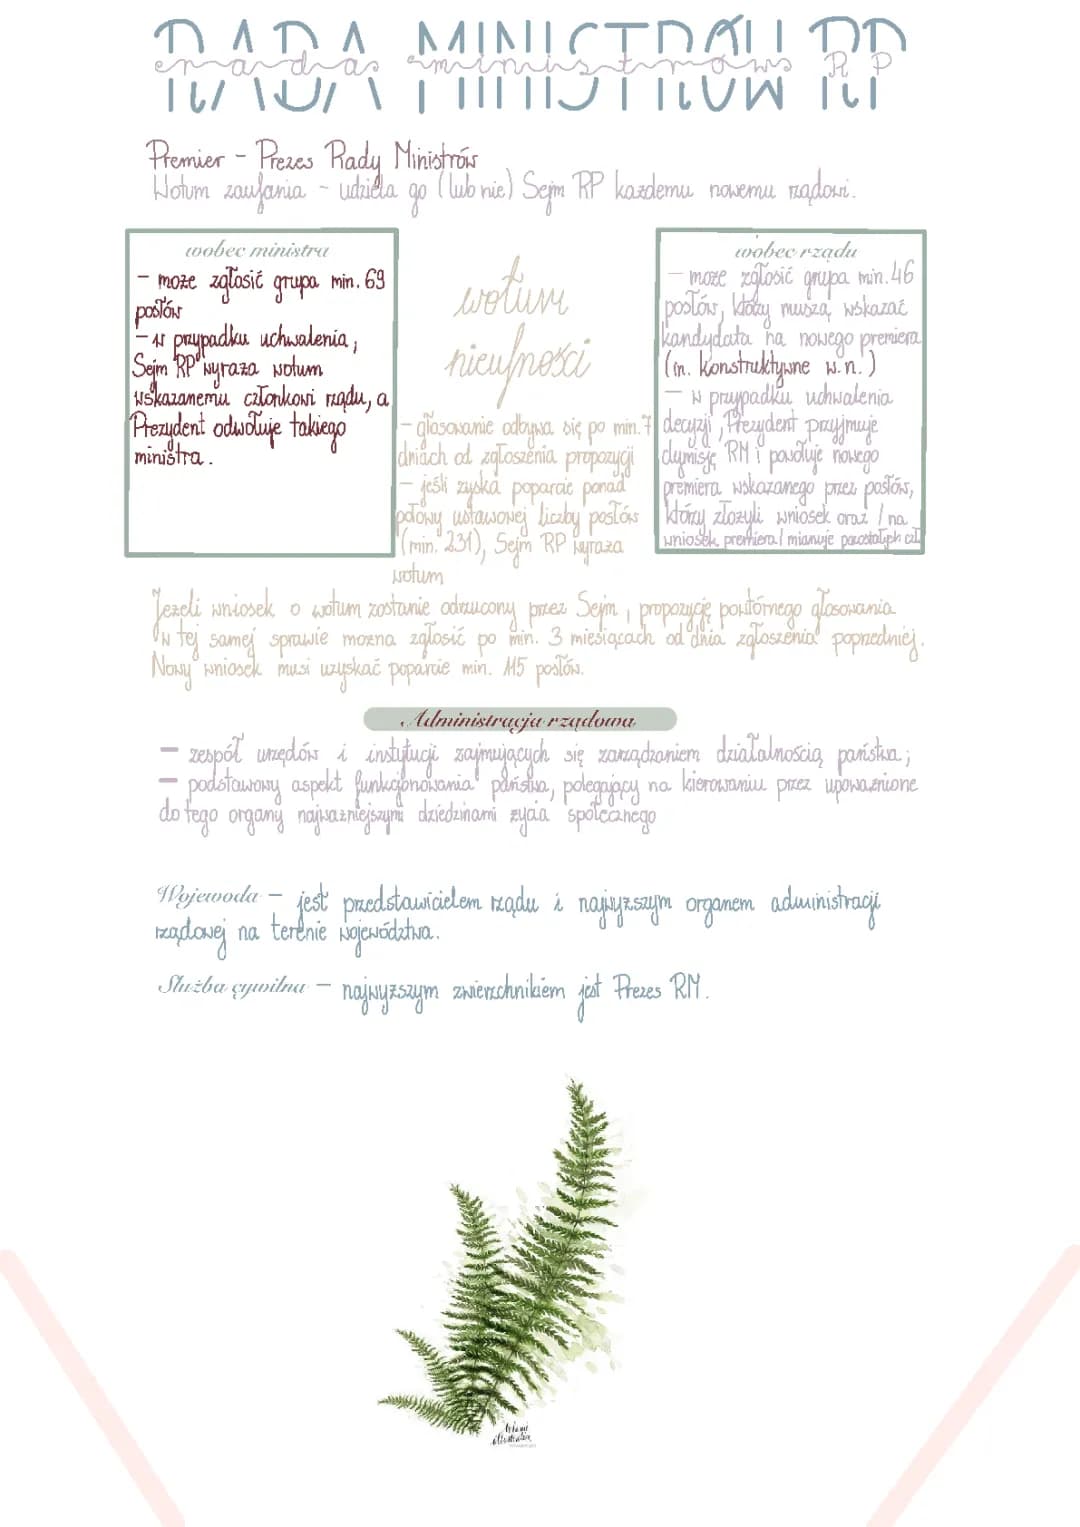 RADA MINISTRÓW RP
rada ministrów RP
Premier - Prezes Rady Ministrów
Wotum zaufania - udziela go (lub nie) Sejm RP każdemu nowemu rządowi.
wobec ministra
- może zgłosić grupa min. 69
posłów
- w przypadku uchwalenia,
Sejm RP wyraża wotum
wskazanemu członkowi rządu, a
Prezydent odwołuje takiego
ministra.
wotum
nieufności
- głosowanie odbywa się po min. 7
dniach od zgłoszenia propozycji
- jeśli zyska poparcie ponad
połowy ustawowej liczby posłów
(min. 231), Sejm RP wyraża
wotum
wobec rządu
- może zgłosić grupa min. 46
posłów, którzy muszą wskazać
kandydata na nowego premiera
(tn. konstruktywne w.n.)
- w przypadku uchwalenia
decyzji, Prezydent przyjmuje
dymisję RM i powołuje nowego
premiera wskazanego przez posłów,
którzy złożyli wniosek oraz / na
wniosek premiera / mianuje pozostałych czł
Jeżeli wniosek o wotum zostanie odrzucony przez Sejm, propozycję powtórnego głosowania
w tej samej sprawie można zgłosić po min. 3 miesiącach od dnia zgłoszenia poprzedniej.
Nowy wniosek musi uzyskać poparcie min. 115 posłów.
Administracja rządowa
- zespół urzędów i instytucji zajmujących się zarządzaniem działalnością państwa;
- podstawowy aspekt funkcjonowania państwa, polegający na kierowaniu przez upoważnione
do tego organy najważniejszymi dziedzinami życia społecznego
Wojewoda - jest przedstawicielem rządu i najwyższym organem administracji
rządowej na terenie województwa.
Służba cywilna - najwyższym zwierzchnikiem jest Prezes RM.